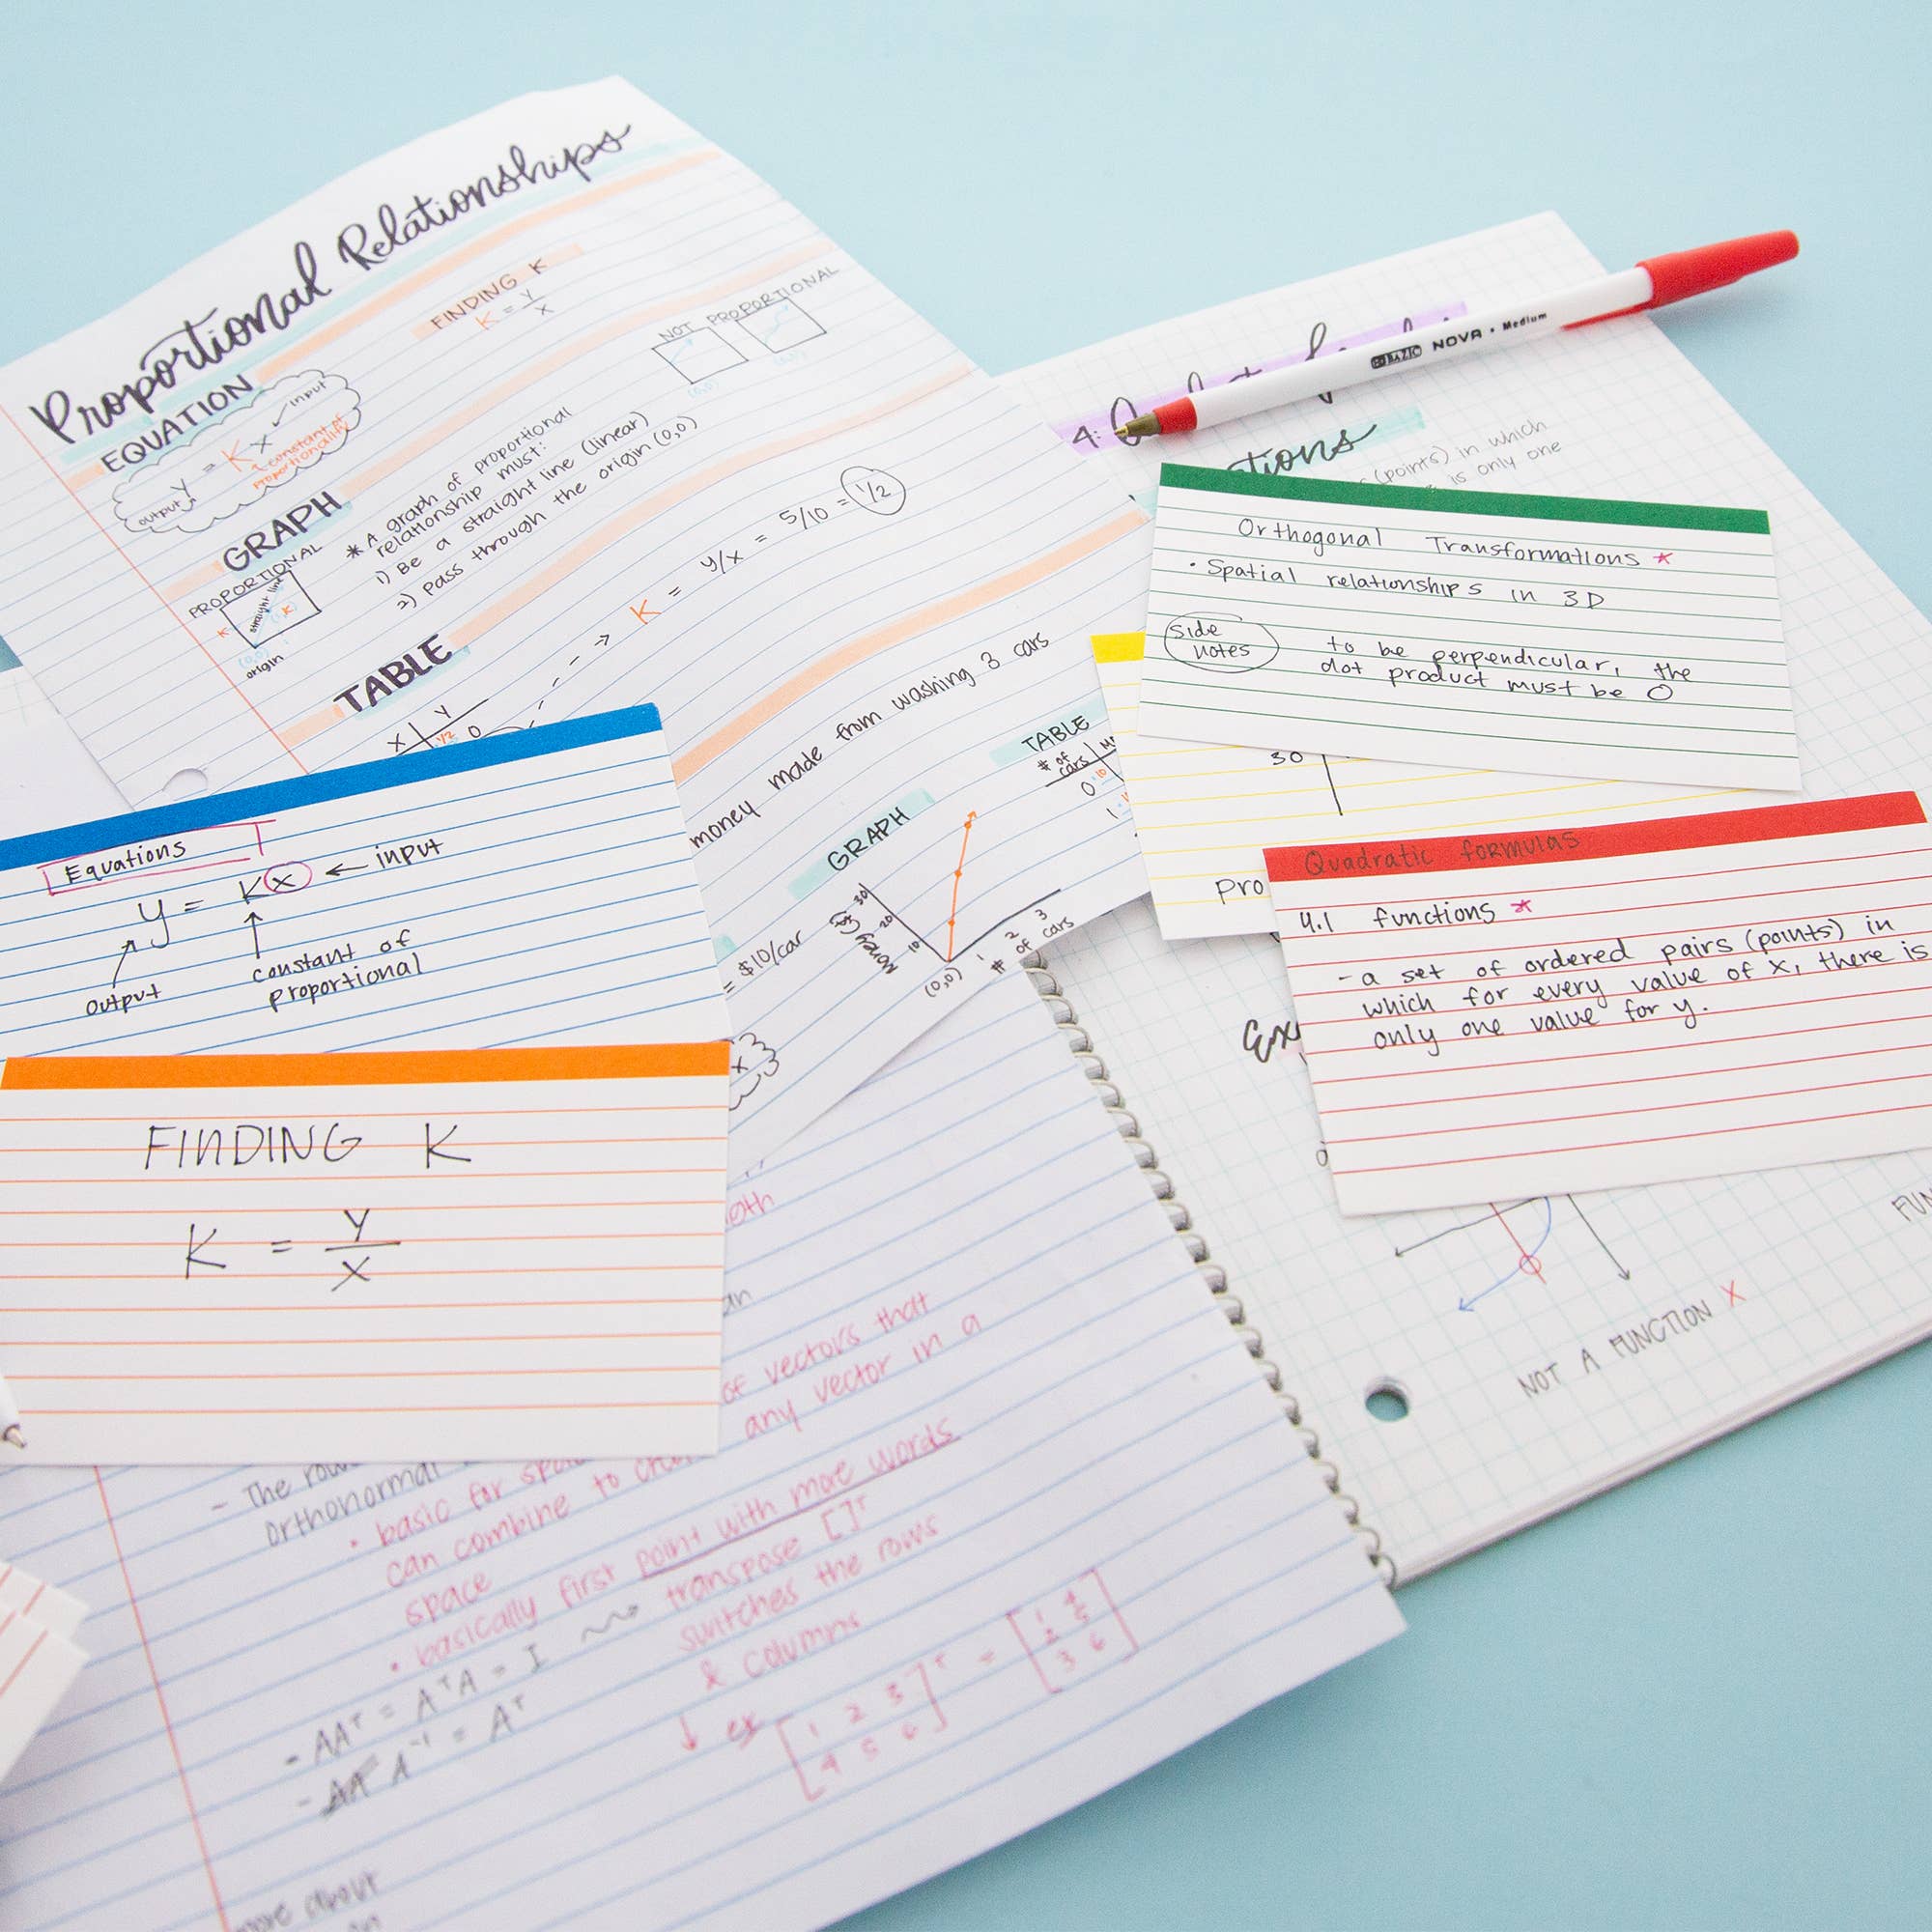 Proportional Relationships
EQUATION
y = Kx
input
output
constant of
proportionality
FINDING K
K = Y/X
NOT PROPORTIONAL
(0,0)
(0,0)
GRAPH
PROPORTIONAL
straight line
K
(0,0)
origin
* A graph of proportional
relationship must:
1) Be a straight line (linear)
2) Pass through the origin (0,0)
TABLE
X Y
1/2 0
K = Y/X = 5/10 = 1/2
money made from washing 3 cars
GRAPH
30
20
10
money ($)
(0,0)
1 2 3
# of cars
TABLE
# of
cars
0
1
= $10/car
x
4:
BAZIC NOVA • Medium
(points) in which
is only one
Orthogonal Transformations *
• Spatial relationships in 3D
side
notes
to be perpendicular, the
dot product must be 0
30
pro
Quadratic formulas
4.1 functions *
- a set of ordered pairs (points) in
which for every value of x, there is
only one value for y.
Ex
NOT A FUNCTION X
FUN
Equations
y = Kx ← input
output
constant of
proportional
FINDING K
K = Y/X
of vectors that
any vector in a
- The rows
orthonormal
• basic for
can combine to
space
• basically first point with more words
- AAᵀ = AᵀA = I
transpose []ᵀ
switches the rows
& columns
- A⁻¹ = Aᵀ
↓ ex
[1 2 3
4 5 6]ᵀ = [1 4
2 5
3 6]
more about